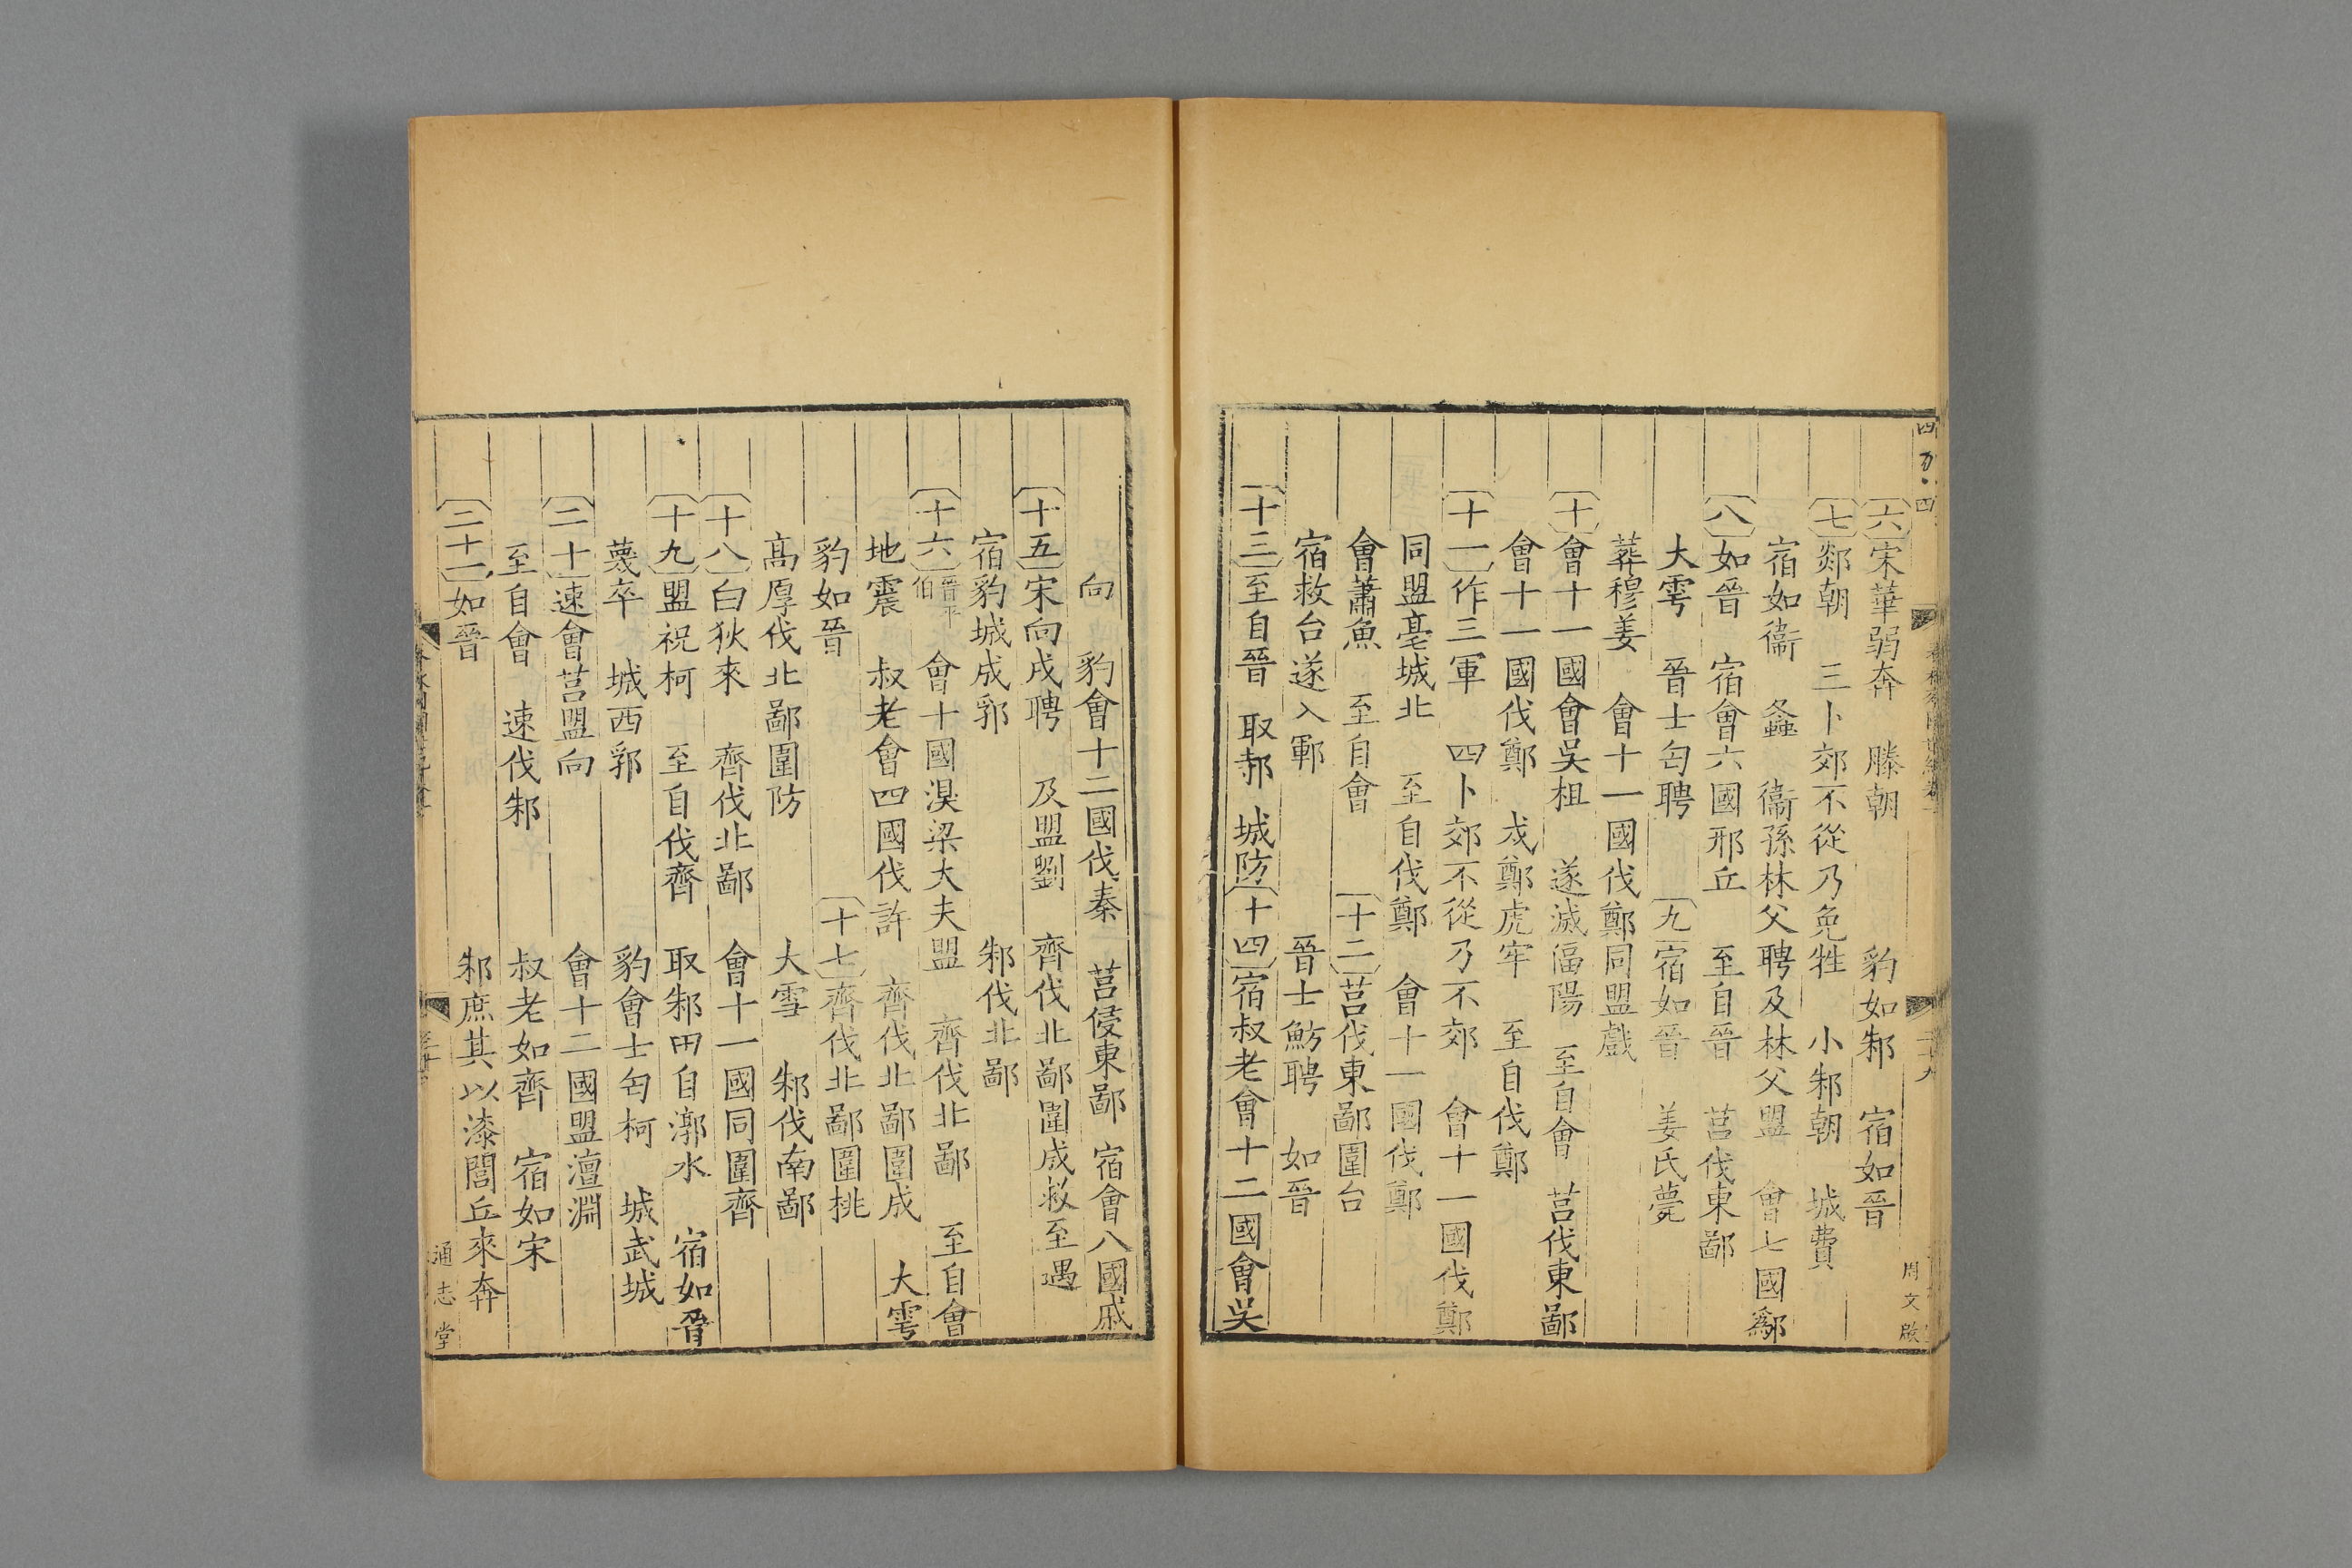 六宋華弱奔　滕朝　豹如邾　宿如晉
七郯朝　三卜郊不從乃免牲　小邾朝　城費
宿如衞　螽　衞孫林父聘及林父盟　會七國鄬
八如晉　宿會六國邢丘　至自晉　莒伐東鄙
大雩　晉士匄聘　九宿如晉　姜氏薨
葬穆姜　會十一國伐鄭同盟戲
十會十一國會吳柤　遂滅偪陽　至自會　莒伐東鄙
會十一國伐鄭　戍鄭虎牢　至自伐鄭
十一作三軍　四卜郊不從乃不郊　會十一國伐鄭
同盟亳城北　至自伐鄭　會十一國伐鄭
會蕭魚　至自會　十二莒伐東鄙圍台
宿救台遂入鄆　晉士魴聘　如晉
十三至自晉　取邿　城防十四宿叔老會十二國會吳
周文啟
向　豹會十二國伐秦　莒侵東鄙　宿會八國戚
十五宋向戌聘　及盟劉　齊伐北鄙圍成救至遇
宿豹城成郛　邾伐北鄙
十六晉平伯　會十國湨梁大夫盟　齊伐北鄙　至自會
地震　叔老會四國伐許　齊伐北鄙圍成　大雩
豹如晉　十七齊伐北鄙圍桃
高厚伐北鄙圍防　大雪　邾伐南鄙
十八白狄來　齊伐北鄙　會十一國同圍齊
十九盟祝柯　至自伐齊　取邾田自漷水　宿如晉
蔑卒　城西郛　豹會士匄柯　城武城
二十速會莒盟向　會十二國盟澶淵
至自會　速伐邾　叔老如齊　宿如宋
二十一如晉　邾庶其以漆閭丘來奔
通志堂